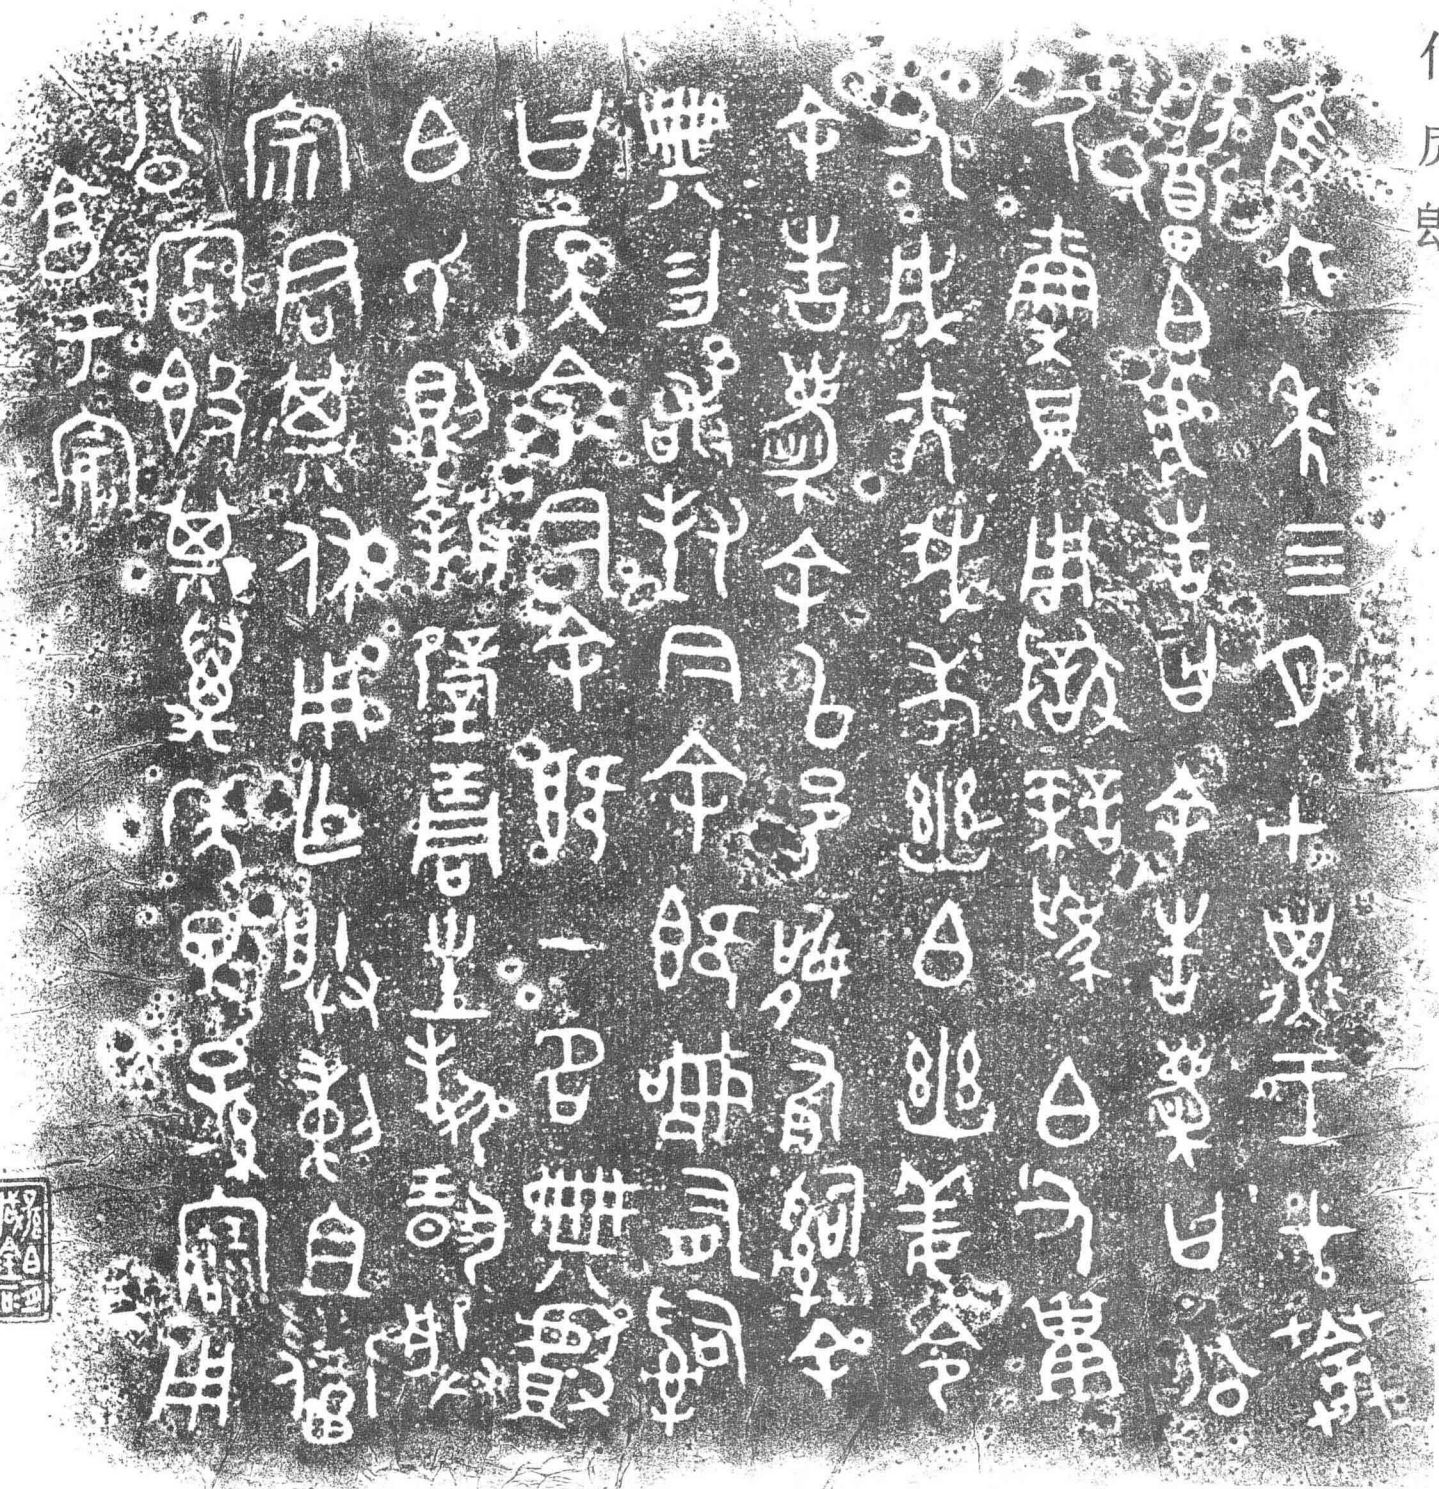 隹六年四月甲子王才𦯔
召白虎告曰余告慶曰公
氒稟貝用獄諫爲白又祗
又成亦我考幽白幽姜令
余告慶余㠯邑訊有𤔲余
典勿敢封今余既訊有𤔲
曰𠭯令今余既一名典獻
白氏則報璧琱生對揚朕
宗君其休用乍朕剌且召
公嘗𣪘其萬年子孫寶用
亯于宗